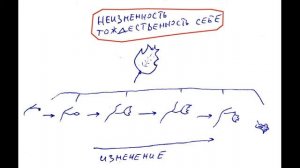 НЕИЗМЕННОСТЬ
ТОЖДЕСТВЕННОСТЬ СЕБЕ
ИЗМЕНЕНИЕ